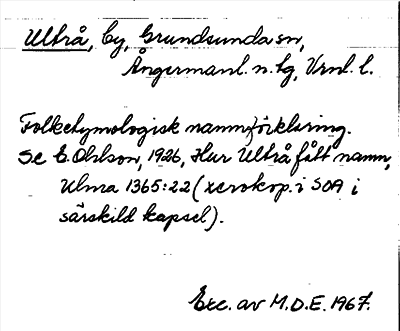 Ultrå, by, Grundsunda sn,
Ångermanl. n. tg, Vrnl. l.
Folketymologisk namnförklaring.
Se E. Ohlson, 1926, Hur Ultrå fått namn,
Ulma 1365:22 (xerokop. i SOA i
särskild kapsel).
Exc. av M.D.E. 1967.